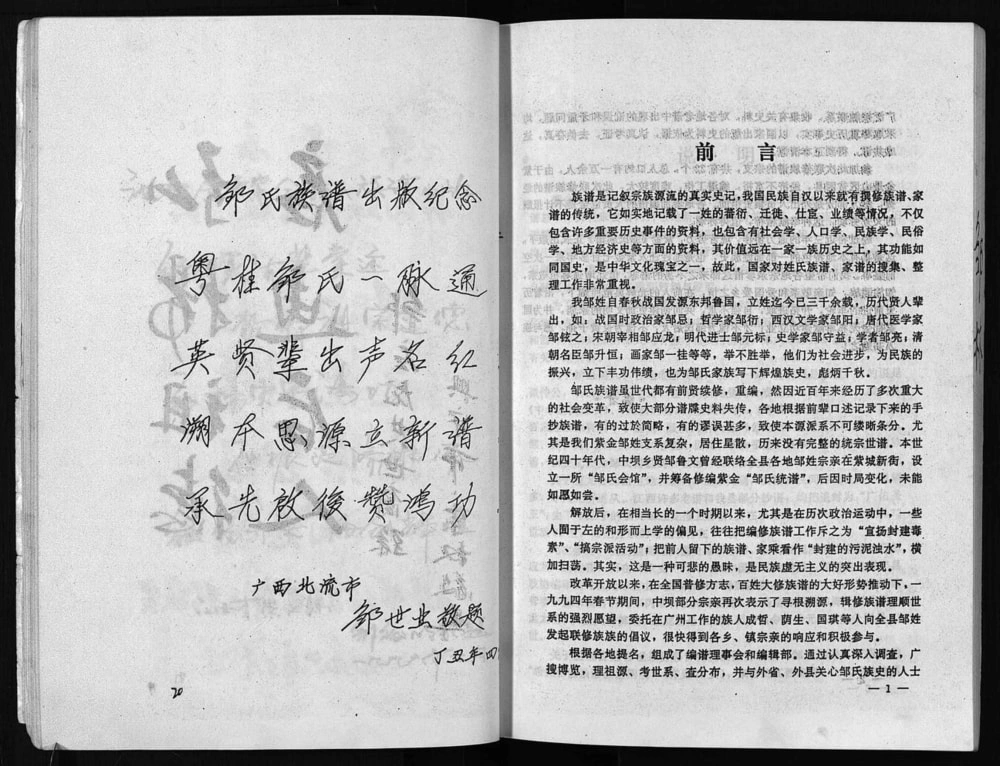 邹氏族谱出版纪念
粤桂邹氏一脉通
英贤辈出声名红
溯本思源立新谱
承先啟後赞鸿功
广西北流市
邹世业敬题
丁丑年四
20
前言
族谱是记叙宗族源流的真实史记,我国民族自汉以来就有撰修族谱、家
谱的传统,它如实地记载了一姓的蕃衍、迁徙、仕宦、业绩等情况,不仅
包含许多重要历史事件的资料,也包含有社会学、人口学、民族学、民俗
学、地方经济史等方面的资料,其价值远在一家一族历史之上,其功能如
同国史,是中华文化瑰宝之一,故此,国家对姓氏族谱、家谱的搜集、整
理工作非常重视。
我邹姓自春秋战国发源东邦鲁国,立姓迄今已三千余载,历代贤人辈
出,如:战国时政治家邹忌;哲学家邹衍;西汉文学家邹阳;唐代医学家
邹铉之;宋朝宰相邹应龙;明代进士邹元标;史学家邹守益;学者邹亮;清
朝名臣邹升恒;画家邹一桂等等,举不胜举,他们为社会进步,为民族的
振兴,立下丰功伟绩,也为邹氏家族写下辉煌族史,彪炳千秋。
邹氏族谱虽世代都有前贤续修,重编,然因近百年来经历了多次重大
的社会变革,致使大部分谱牒史料失传,各地根据前辈口述记录下来的手
抄族谱,有的过於简略,有的谬误甚多,致使本源派系不可缕晰条分。尤
其是我们紫金邹姓支系复杂,居住星散,历来没有完整的统宗世谱。本世
纪四十年代,中坝乡贤邹鲁文曾经联络全县各地邹姓宗亲在紫城新街,设
立一所“邹氏会馆”,并筹备修编紫金“邹氏统谱”,后因时局变化,未能
如愿如尝。
解放后,在相当长的一个时期以来,尤其是在历次政治运动中,一些
人囿于左的和形而上学的偏见,往往把编修族谱工作斥之为“宣扬封建毒
素”、“搞宗派活动”;把前人留下的族谱、家乘看作“封建的污泥浊水”,横
加扫荡。其实,这是一种可悲的愚昧,是民族虚无主义的突出表现。
改革开放以来,在全国普修方志,百姓大修族谱的大好形势推动下,一
九九四年春节期间,中坝部分宗亲再次表示了寻根溯源,辑修族谱理顺世
系的强烈愿望,委托在广州工作的族人成哲、荫生、国琪等人向全县邹姓
发起联修族族的倡议,很快得到各乡、镇宗亲的响应和积极参与。
根据各地提名,组成了编谱理事会和编辑部。通过认真深入调查,广
搜博览,理祖源、考世系、查分布,并与外省、外县关心邹氏族史的人士
— 1 —